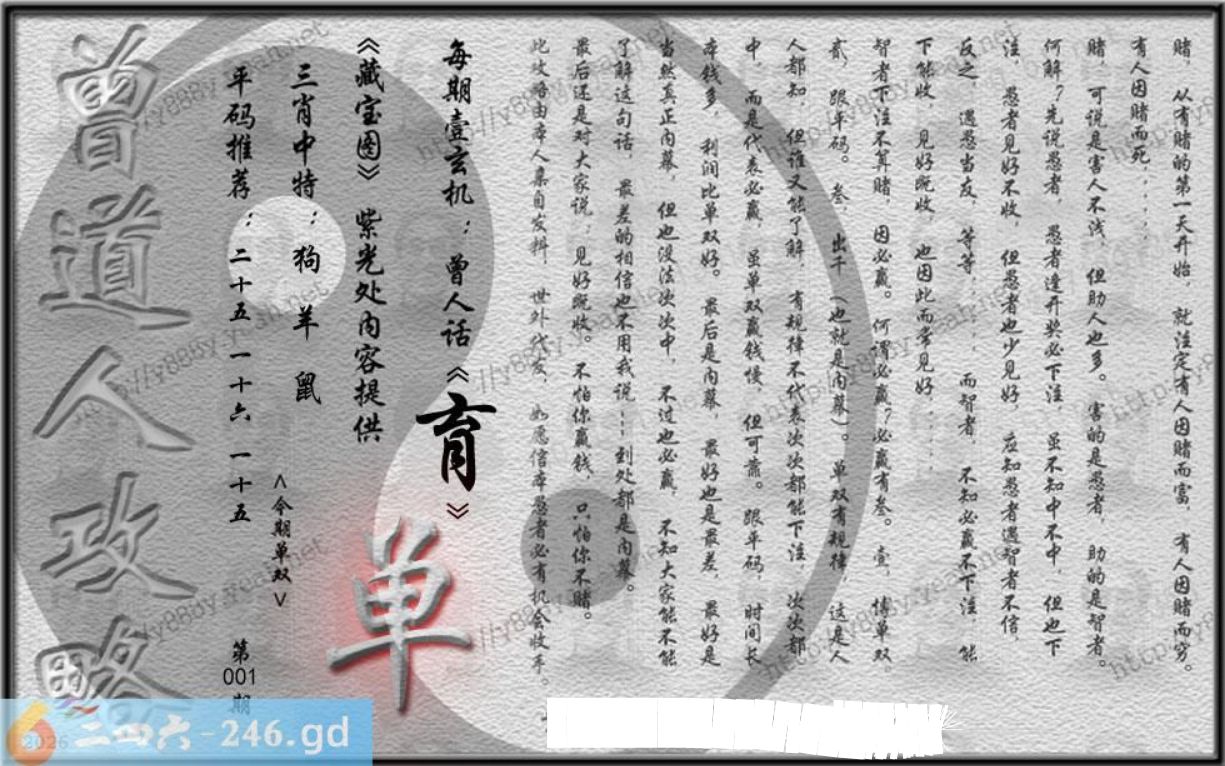 赌，从有赌的第一天开始，就注定有人因赌而富，有人因赌而穷。
有人因赌而死．．．．．．
赌，可说是害人不浅，但助人也多。害的是愚者，助的是智者。
何解？先说愚者，愚者逢开奖必下注，虽不知中不中，但也下
注，愚者见好不收，但愚者也少见好，应知愚者遇智者不信，
反之，遇愚当友，等等．．．，而智者，不知必赢不下注，能
下能收，见好既收，也因此而常见好．．．．．．
智者下注不算赌，因必赢。何谓必赢？必赢有叁。壹，博单双，
贰，跟平码。叁，出千（也就是内幕）。单双有规律，这是人
人都知，但谁又能了解，有规律不代表次次都能下注，次次都
中，而是代表必赢，虽单双赢钱慢，但可靠。跟单码，时间长
本钱多，利润比单双好。最后是内幕，最好也是最差，最好是
当然真正内幕，但也没法次次中，不过也必赢，不知大家能不能
了解这句话，最差的相信也不用我说……到处都是内幕。
最后还是对大家说，见好既收。不怕你赢钱，只怕你不赌。
此攻略由本人亲自发料，世外代发，如愿信本愚者必有机会收丰。
每期壹玄机：曾人话《育》
《藏宝图》紫光处内容提供
单
三肖中特：狗 羊 鼠
<今期单双>
平码推荐：二十五 一十六 一十五
第001期
曾道人攻略
2026 二四六-246.gd
http://y888y.yeah.net